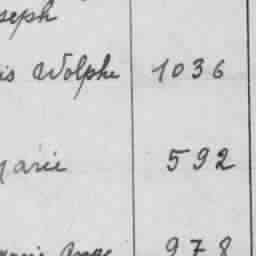 seph
is Adolphe 1036
Marie 592
978